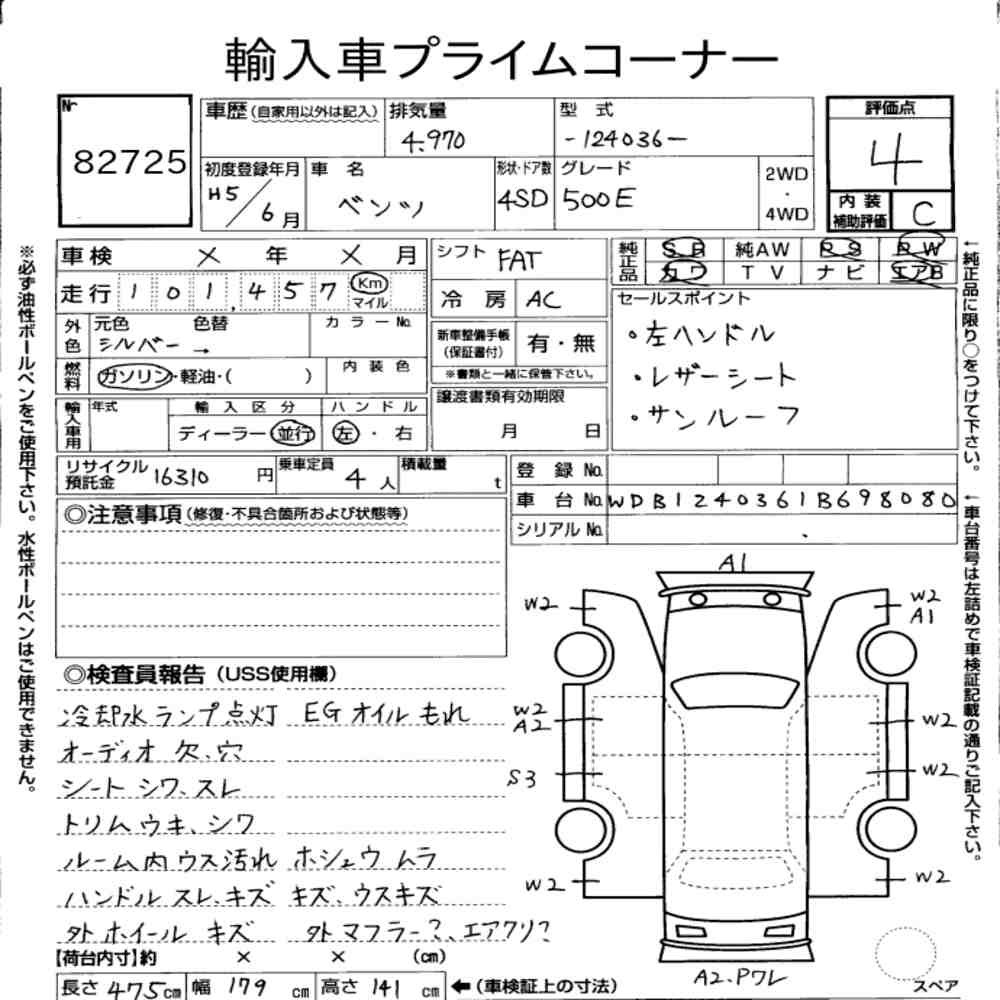 輸入車プライムコーナー
Nr
82725
車歴(自家用以外は記入)
排気量
4.970
型 式
-124036-
評価点
4
初度登録年月
H5/6月
車 名
ベンツ
形状・ドア数
4SD
グレード
500E
2WD
・
4WD
内装補助評価
C
車検 × 年 × 月
シフト FAT
純正品
SR 純AW PS PW
カワ TV ナビ エアB
走行 101,457 Km マイル
冷房 AC
セールスポイント
・左ハンドル
・レザーシート
・サンルーフ
外色
元色 色替 カラーNo.
シルバー →
新車整備手帳(保証書付) 有・無
※書類と一緒に保管下さい。
燃料
ガソリン・軽油・( )
内装色
譲渡書類有効期限
月 日
輸入車用
年式
輸入区分
ディーラー 並行
ハンドル
左・右
リサイクル預託金 16310 円
乗車定員 4 人
積載量 t
登録 No.
車台 No. WDB1240361B698080
シリアル No.
◎注意事項(修復・不具合箇所および状態等)
◎検査員報告(USS使用欄)
冷却水ランプ点灯 EGオイルもれ
オーディオ欠、穴
シート シワ、スレ
トリムウキ、シワ
ルーム内ウス汚れ ホシュウムラ
ハンドルスレ、キズ キズ、ウスキズ
外ホイール キズ 外マフラー?、エアクリ?
【荷台内寸】約 × × (cm)
長さ 475cm 幅 179 cm 高さ 141 cm ←(車検証上の寸法)
A1
W2
W2
A1
W2
A2
W2
S3
W2
W2
W2
A2.Pワレ
スペア
※必ず油性ボールペンをご使用下さい。水性ボールペンはご使用できません。
←純正品に限り○をつけて下さい。
←車台番号は左詰めで車検証記載の通りご記入下さい。